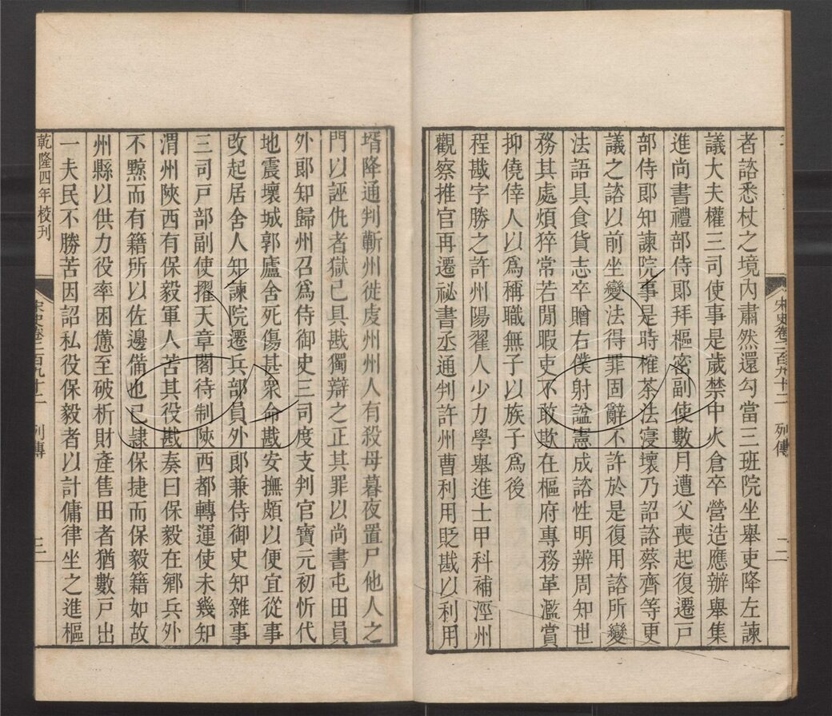 者諮悉杖之境內肅然還勾當三班院坐舉吏降左諫
議大夫權三司使事是歲禁中火倉卒營造應辦舉集
進尚書禮部侍郎拜樞密副使數月遭父喪起復遷戸
部侍郎知諫院事是時榷茶法寖壞乃詔諮蔡齊等更
議之諮以前坐變法得罪固辭不許於是復用諮所變
法語具食貨志卒贈右僕射諡憲成諮性明辨周知世
務其處煩猝常若閒暇吏不敢欺在樞府專務革濫賞
抑僥倖人以爲稱職無子以族子爲後
程戡字勝之許州陽翟人少力學舉進士甲科補涇州
觀察推官再遷祕書丞通判許州曹利用貶戡以利用
壻降通判蘄州徙虔州州人有殺母暮夜置尸他人之
門以誣仇者獄已具戡獨辯之正其罪以尚書屯田員
外郎知歸州召爲侍御史三司度支判官寶元初忻代
地震壞城郭廬舍死傷甚衆命戡安撫頗以便宜從事
改起居舍人知諫院遷兵部員外郎兼侍御史知雜事
三司戸部副使擢天章閣待制陝西都轉運使未幾知
渭州陝西有保毅軍人苦其役戡奏曰保毅在鄉兵外
不黥而有籍所以佐邊備也已隷保捷而保毅籍如故
州縣以供力役率困憊至破析財產售田者猶數戸出
一夫民不勝苦因詔私役保毅者以計傭律坐之進樞
乾隆四年校刊
宋史卷二百九十二
列傳
三
宋史卷二百九十二
列傳
二